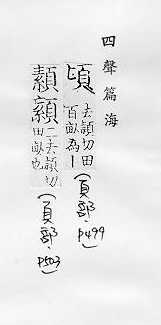 四聲篇海
頃 去穎切田
百畝為丨
(頁部. p499)
二去穎切
田畝也
(頁部. p503)